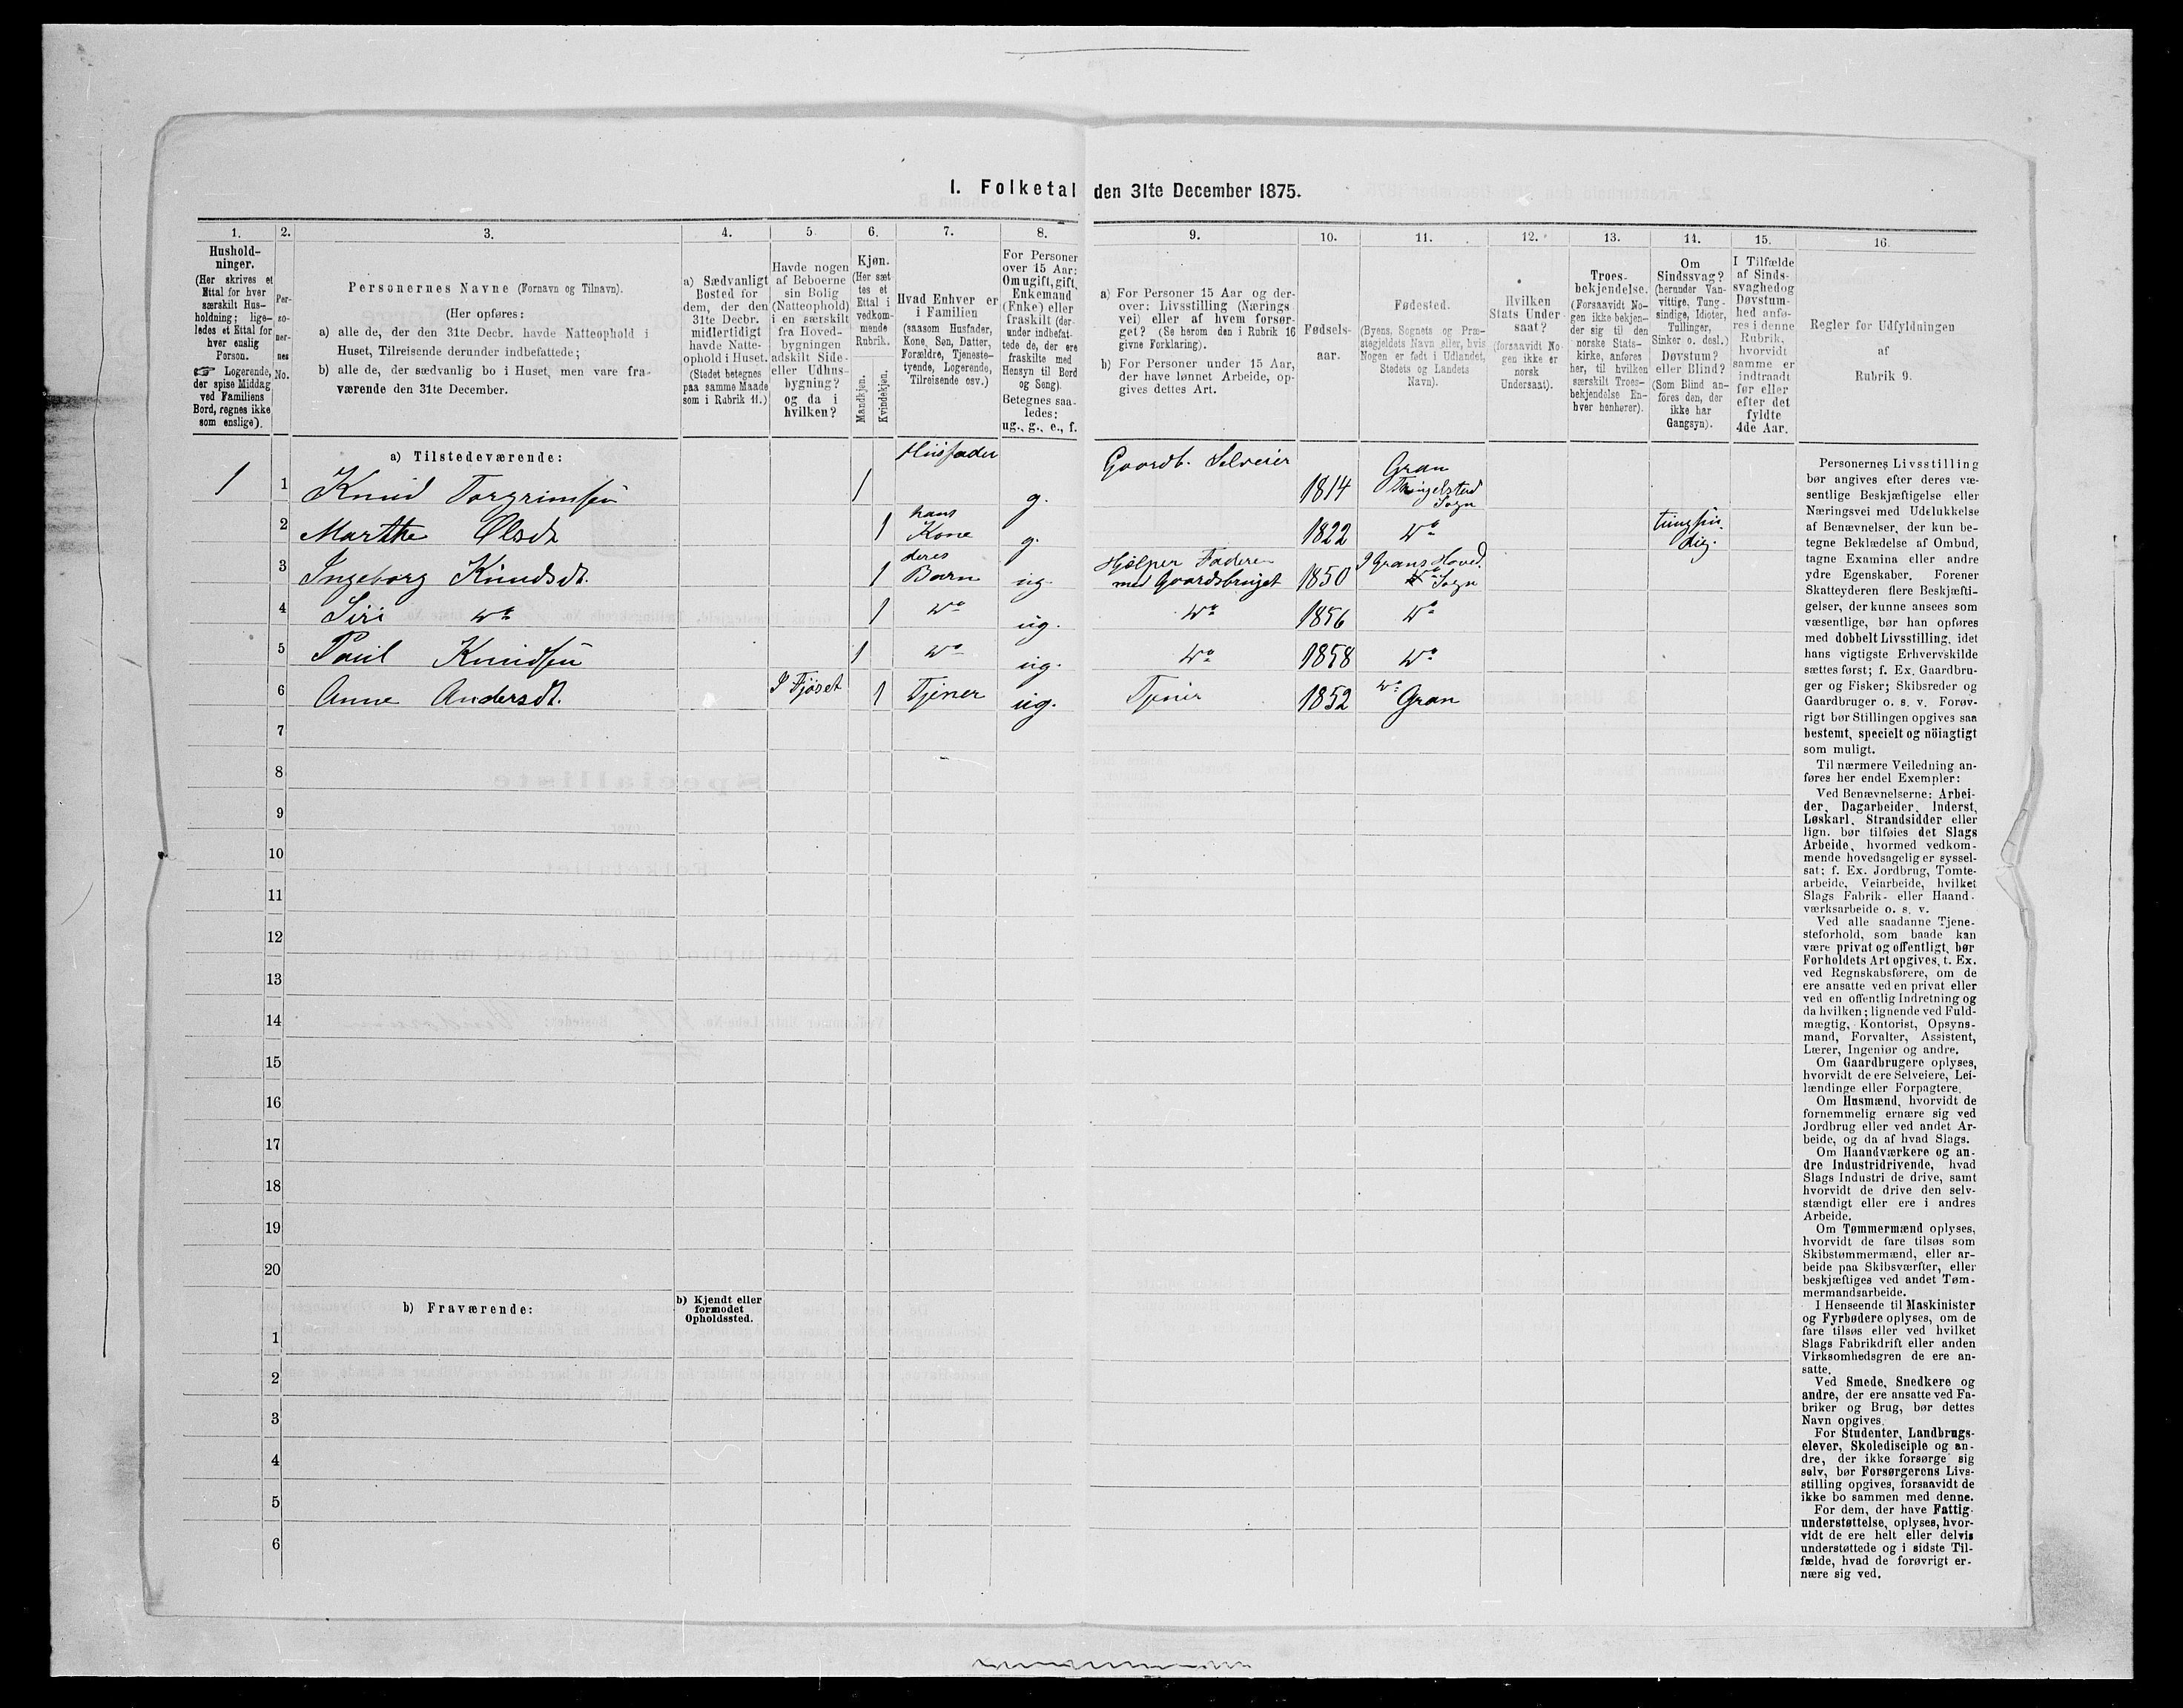 1. Folketal den 31te December 1875.
1.
Hushold-
ninger.
(Her skrives et
Ettal for hver
særskilt Hus-
holdning; lige-
ledes et Ettal for
hver enslig
Person.
☞ Logerende,
der spise Middag
ved Familiens
Bord, regnes ikke
som enslige).
2.
Per-
so-
ner-
nes
No.
3.
Personernes Navne (Fornavn og Tilnavn).
(Her opføres:
a) alle de, der den 31te Decbr. havde Natteophold i
Huset, Tilreisende derunder indbefattede;
b) alle de, der sædvanlig bo i Huset, men vare fra-
værende den 31te December.
4.
a) Sædvanligt
Bosted for
dem, der den
31te Decbr.
midlertidigt
havde Natte-
ophold i Huset.
(Stedet betegnes
paa samme Maade
som i Rubrik 11.)
5.
Havde nogen
af Beboerne
sin Bolig
(Natteophold)
i en særskilt
fra Hoved-
bygningen
adskilt Side-
eller Udhus-
bygning?
og da i
hvilken?
6.
Kjøn.
(Her sæt
tes et
Ettal i
vedkom-
mende
Rubrik.
Mandkjøn.
Kvindekjøn.
7.
Hvad Enhver er
i Familien
(saasom Husfader,
Kone, Søn, Datter,
Forældre, Tjeneste-
tyende, Logerende,
Tilreisende osv.)
8.
For Personer
over 15 Aar:
Om ugift, gift,
Enkemand
(Enke) eller
fraskilt (der-
under indbefat-
tede de, der ere
fraskilte med
Hensyn til Bord
og Seng).
Betegnes saa-
ledes:
ug., g., e., f.
9.
a) For Personer 15 Aar og der-
over: Livsstilling (Nærings
vei) eller af hvem forsør-
get? (Se herom den i Rubrik 16
givne Forklaring).
b) For Personer under 15 Aar,
der have lønnet Arbeide, op-
gives dettes Art.
10.
Fødsels-
aar.
11.
Fødested.
(Byens, Sognets og Præ-
stegjeldets Navn eller, hvis
Nogen er født i Udlandet,
Stedets og Landets
Navn).
12.
Hvilken
Stats Under-
saat?
(forsaavidt No-
gen ikke er
norsk
Undersaat).
13.
Troes-
bekjendelse.
(Forsaavidt No-
gen ikke bekjen-
der sig til den
norske Stats-
kirke, anføres
her, til hvilken
særskilt Troes-
bekjendelse En-
hver henhører).
14.
Om
Sindssvag?
(herunder Van-
vittige, Tung-
sindige, Idioter,
Tullinger,
Sinker o. desl.)
Døvstum?
eller Blind?
(Som Blind an-
føres den, der
ikke har
Gangsyn).
15.
I Tilfælde
af Sinds-
svaghed og
Døvstum-
hed anfø-
res i denne
Rubrik,
hvorvidt
samme er
indtraadt
før eller
efter det
fyldte
4de Aar.
16.
Regler for Udfyldningen
af
Rubrik 9.
a) Tilstedeværende:
1 1 Knud Torgrimsen 1 Husfader g. Gaardb. Selveier 1814 Gran Tingelstad Sogn
2 Marthe Olsdt 1 hans Kone g. 1822 Do tungsin-dig.
3 Ingeborg Knudsdt. 1 deres Barn ug. Hjelper Faderen med Gaardsbruget 1850 I Grans Hoved Sogn
4 Siri Do 1 Do ug. Do 1856 Do
5 Paul Knudsen 1 Do ug. Do 1858 Do
6 Anne Andersdt. I Fjøset 1 Tjener ug. Tjener 1852 Do Gran
7
8
9
10
11
12
13
14
15
16
17
18
19
20
b) Fraværende:
b) Kjendt eller
formodet
Opholdssted.
1
2
3
4
5
6
Personernes Livsstilling
bør angives efter deres væ-
sentlige Beskjæftigelse eller
Næringsvei med Udelukkelse
af Benævnelser, der kun be-
tegne Beklædelse af Ombud,
tagne Examina eller andre
ydre Egenskaber. Forener
Skatteyderen flere Beskjæfti-
gelser, der kunne ansees som
væsentlige, bør han opføres
med dobbelt Livsstilling, idet
hans vigtigste Erhvervskilde
sættes først; f. Ex. Gaardbru-
ger og Fisker; Skibsreder og
Gaardbruger o. s. v. Forøv-
rigt bør Stillingen opgives saa
bestemt, specielt og nöiagtigt
som muligt.
Til nærmere Veiledning an-
føres her endel Exempler:
Ved Benævnelserne: Arbei-
der, Dagarbeider, Inderst,
Løskarl, Strandsidder eller
lign. bør tilføies det Slags
Arbeide, hvormed vedkom-
mende hovedsagelig er syssel-
sat; f. Ex. Jordbrug, Tomte-
arbeide, Veiarbeide, hvilket
Slags Fabrik- eller Haand-
værksarbeide o. s. v.
Ved alle saadanne Tjene-
steforhold, som baade kan
være privat og offentligt, bør
Forholdets Art opgives, t. Ex.
ved Regnskabsførere, om de
ere ansatte ved en privat eller
ved en offentlig Indretning og
da hvilken; lignende ved Fuld-
mægtig, Kontorist, Opsyns-
mand, Forvalter, Assistent,
Lærer, Ingeniør og andre.
Om Gaardbrugere oplyses,
hvorvidt de ere Selveiere, Lei-
lændinge eller Forpagtere.
Om Husmænd, hvorvidt de
fornemmelig ernære sig ved
Jordbrug eller ved andet Ar-
beide, og da af hvad Slags.
Om Haandværkere og an-
dre Industridrivende, hvad
Slags Industri de drive, samt
hvorvidt de drive den selv-
stændigt eller ere i andres
Arbeide.
Om Tømmermænd oplyses,
hvorvidt de fare tilsøs som
Skibstømmermænd, eller ar-
beide paa Skibsværfter, eller
beskjæftiges ved andet Tøm-
mermandsarbeide.
I Henseende til Maskinister
og Fyrbødere oplyses, om de
fare tilsøs eller ved hvilket
Slags Fabrikdrift eller anden
Virksomhedsgren de ere an-
satte.
Ved Smede, Snedkere og
andre, der ere ansatte ved Fa-
briker og Brug, bør dettes
Navn opgives.
For Studenter, Landbrugs-
elever, Skoledisciple og an-
dre, der ikke forsørge sig
selv, bør Forsørgerens Livs-
stilling opgives, forsaavidt de
ikke bo sammen med denne.
For dem, der have Fattig-
understøttelse, oplyses, hvor-
vidt de ere helt eller delvis
understøttede og i sidste Til-
fælde, hvad de forøvrigt er-
nære sig ved.